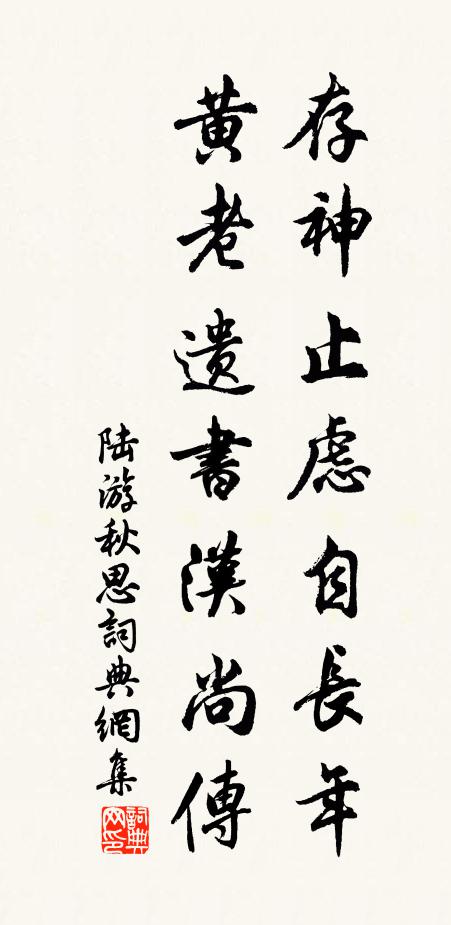 存神止慮自長年
黄老遺書漢尚傳
陸游秋思詞典網集
詞典网印